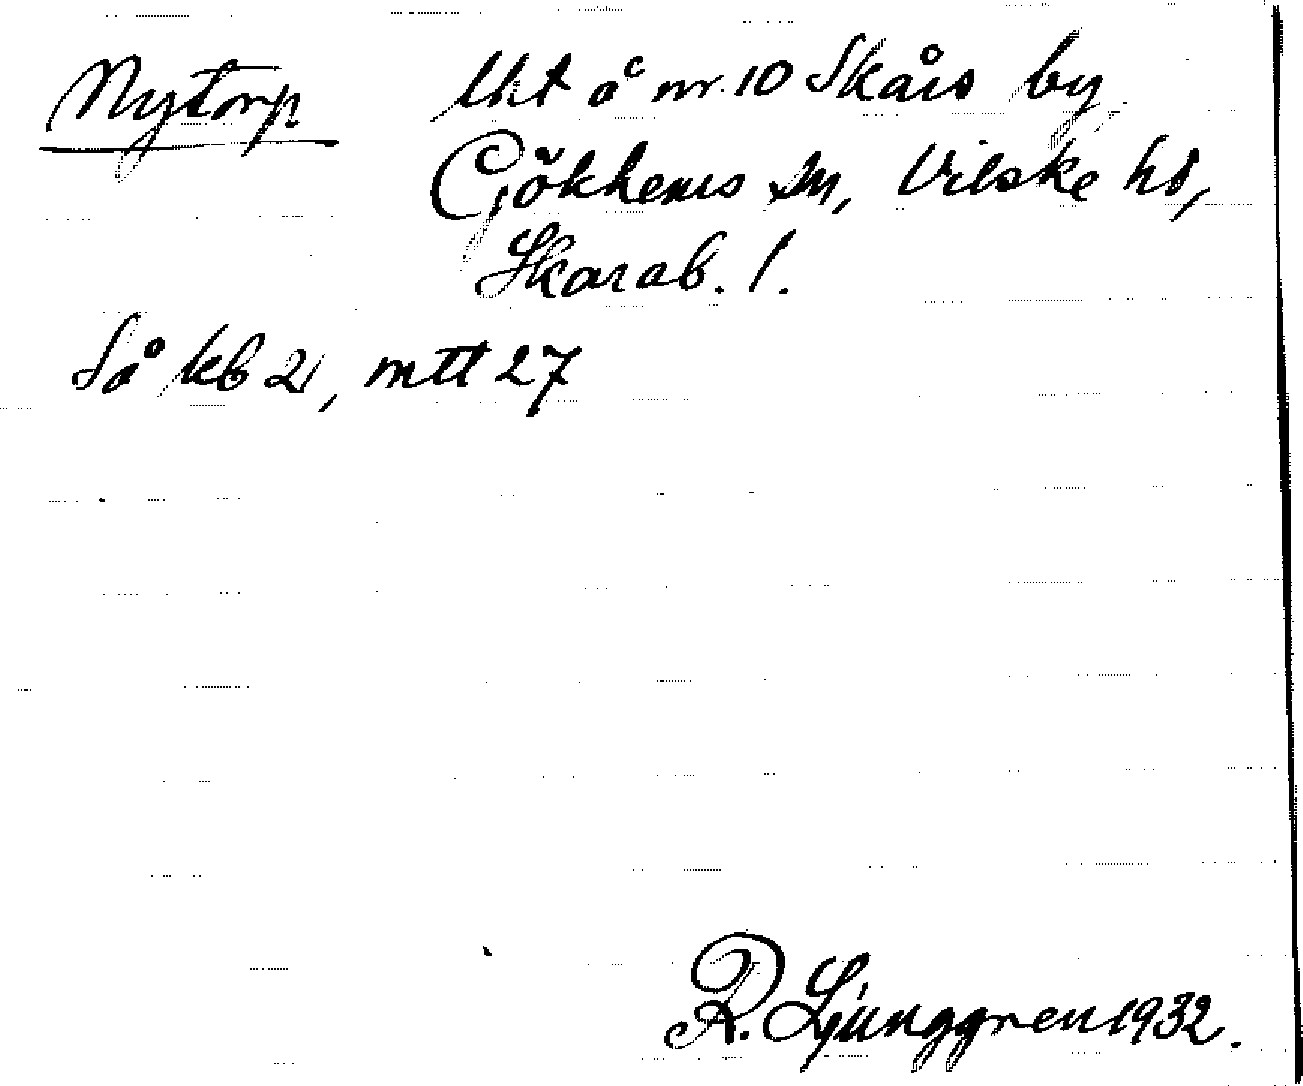 Nytorp lht å nr. 10 Skårs by
Gökhems sn, Vilske hd,
Skarab. l.
Så kb 21, mtt 27
R. Ljunggren 1932.